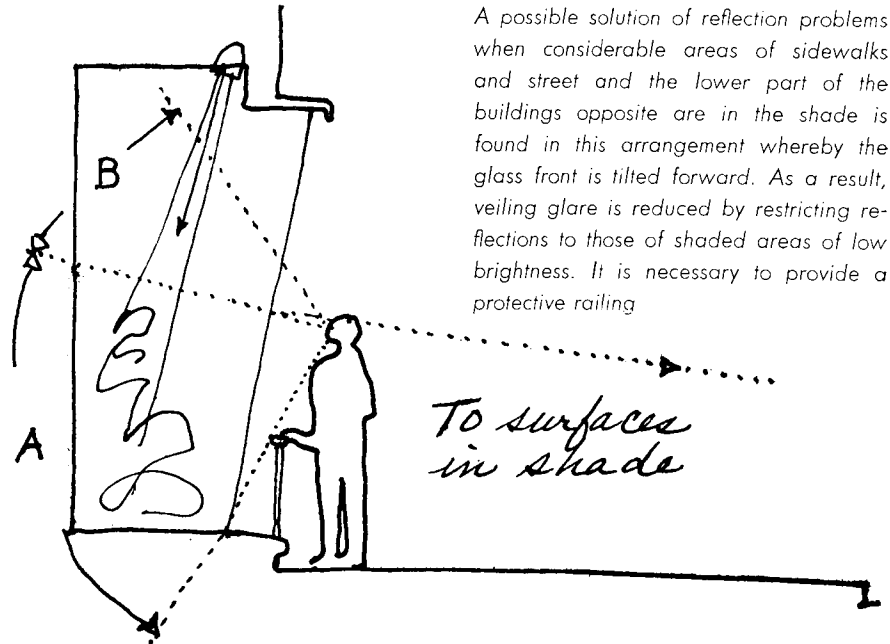 A possible solution of reflection problems
when considerable areas of sidewalks
and street and the lower part of the
buildings opposite are in the shade is
found in this arrangement whereby the
glass front is tilted forward. As a result,
veiling glare is reduced by restricting re-
flections to those of shaded areas of low
brightness. It is necessary to provide a
protective railing
B
A
To surfaces
in shade